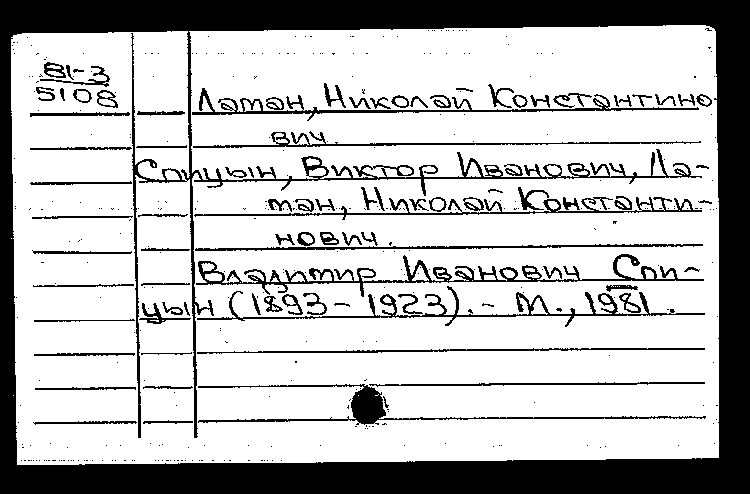 81-3
5108
Ломон, Николой Константино
вич.
Спицын, Виктор Иванович, Ла-
ман, Николай Константи-
нович.
Владимир Иванович Спи-
цын (1893 - 1923). - М., 1981.